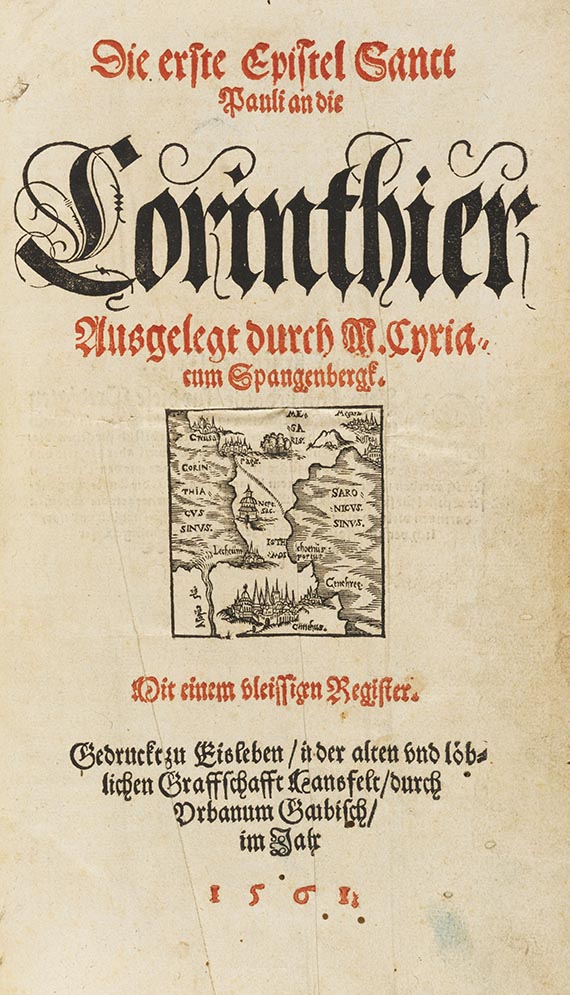 Die erste Epistel Sanct
Pauli an die
Corinthier
Ausgelegt durch M. Cyria-
cum Spangenbergk.
ME
GA
RIS.
Megara
Creusa
Nisea
Pagæ
CORIN
THIA
CVS
SINVS.
SARO
NICVS
SINVS.
Nept.
sac.
ISTH
MOS
Lecheum
Schoenus
portus
Cenchree
Corinthus.
Mit einem vleissigen Register.
Gedruckt zu Eisleben / in der alten vnd löb-
lichen Graffschafft Mansfelt / durch
Vrbanum Gaubisch /
im Jahr
1 5 6 1.